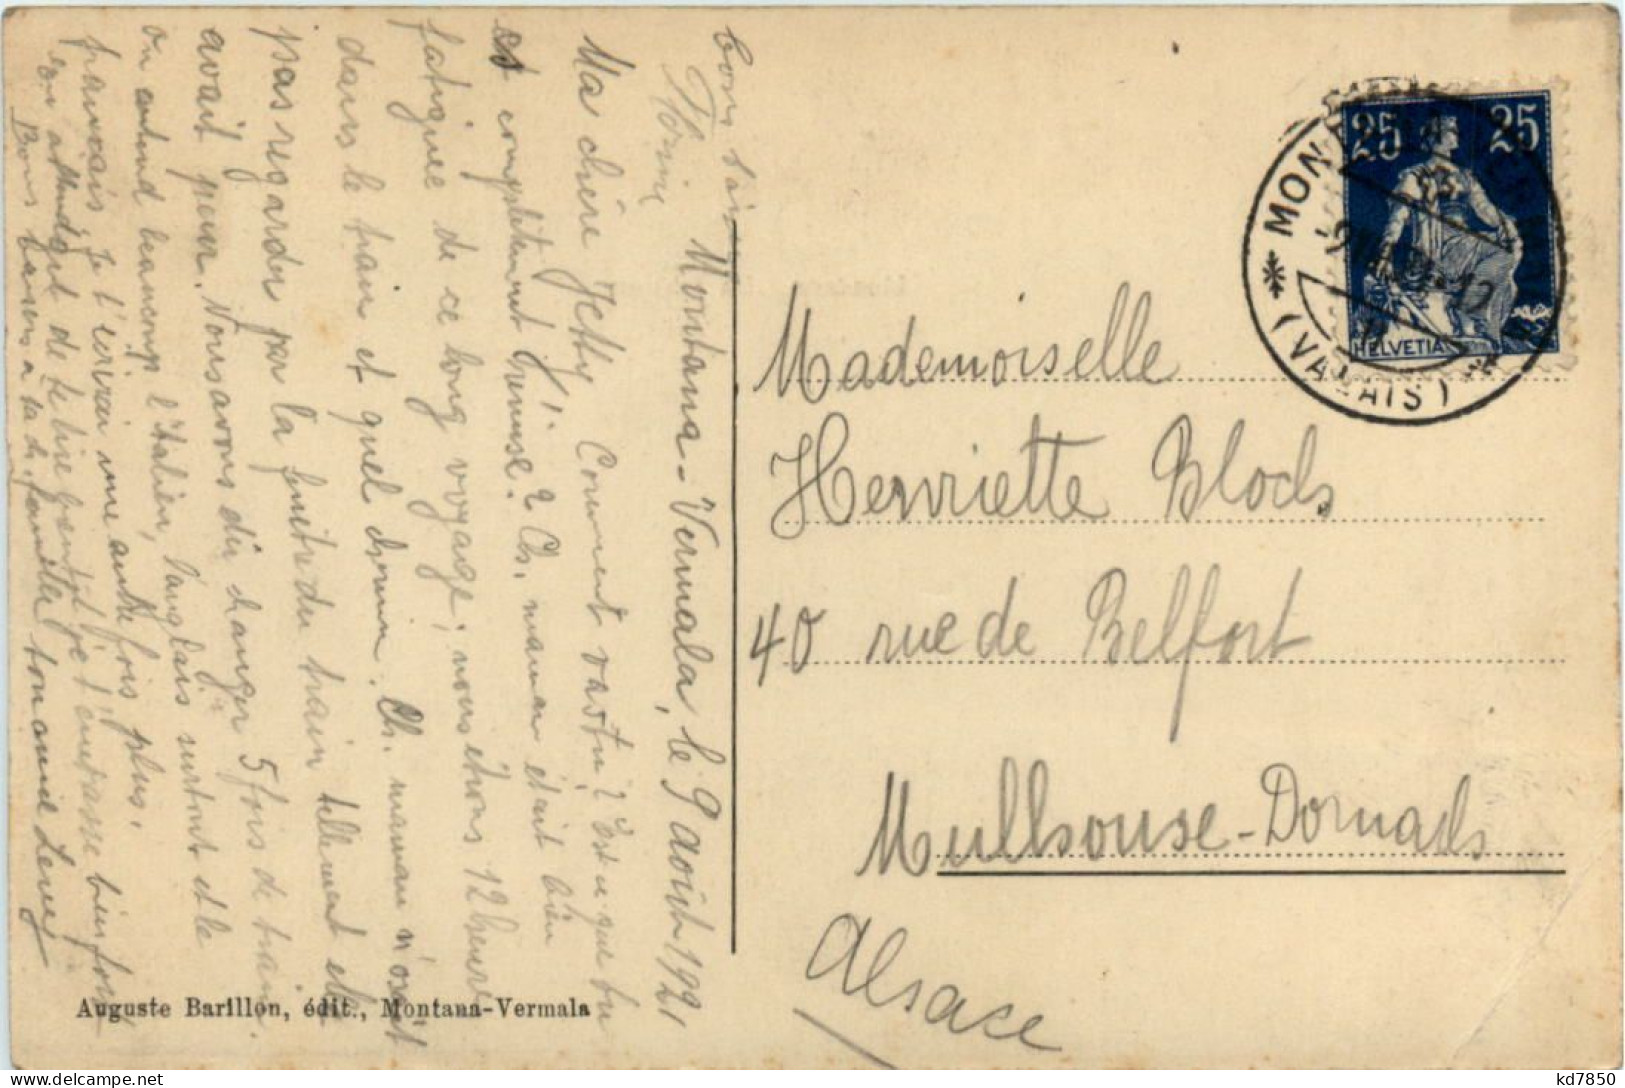 Montana-Vermala, le 9 août 1921
Ma chère Jetty, Comment vas tu? Est ce que tu
es complètement heureuse. J'i Ch. maman était bien
fatiguée de ce long voyage; nous étions 12 heures
dans le train et quel chemin. Ch. maman n'osait
pas regarder par la fenêtre du train tellement elle
avait peur. Nous avons dû changer 5 fois de train.
on entend beaucoup l'italien, l'anglais surtout et le
français. Je t'écrirai une autre fois plus.
En attendant de te lire bientôt je t'embrasse bien fort
Bons baisers à ta ch. famille ton amie Leny
bons bais
Mademoiselle
Henriette Bloch
40 rue de Belfort
Mulhouse-Dornach
Alsace
25 25
HELVETIA
MONTANA-VERMALA
(VALAIS)
Auguste Barillon, édit., Montana-Vermala
kd7850